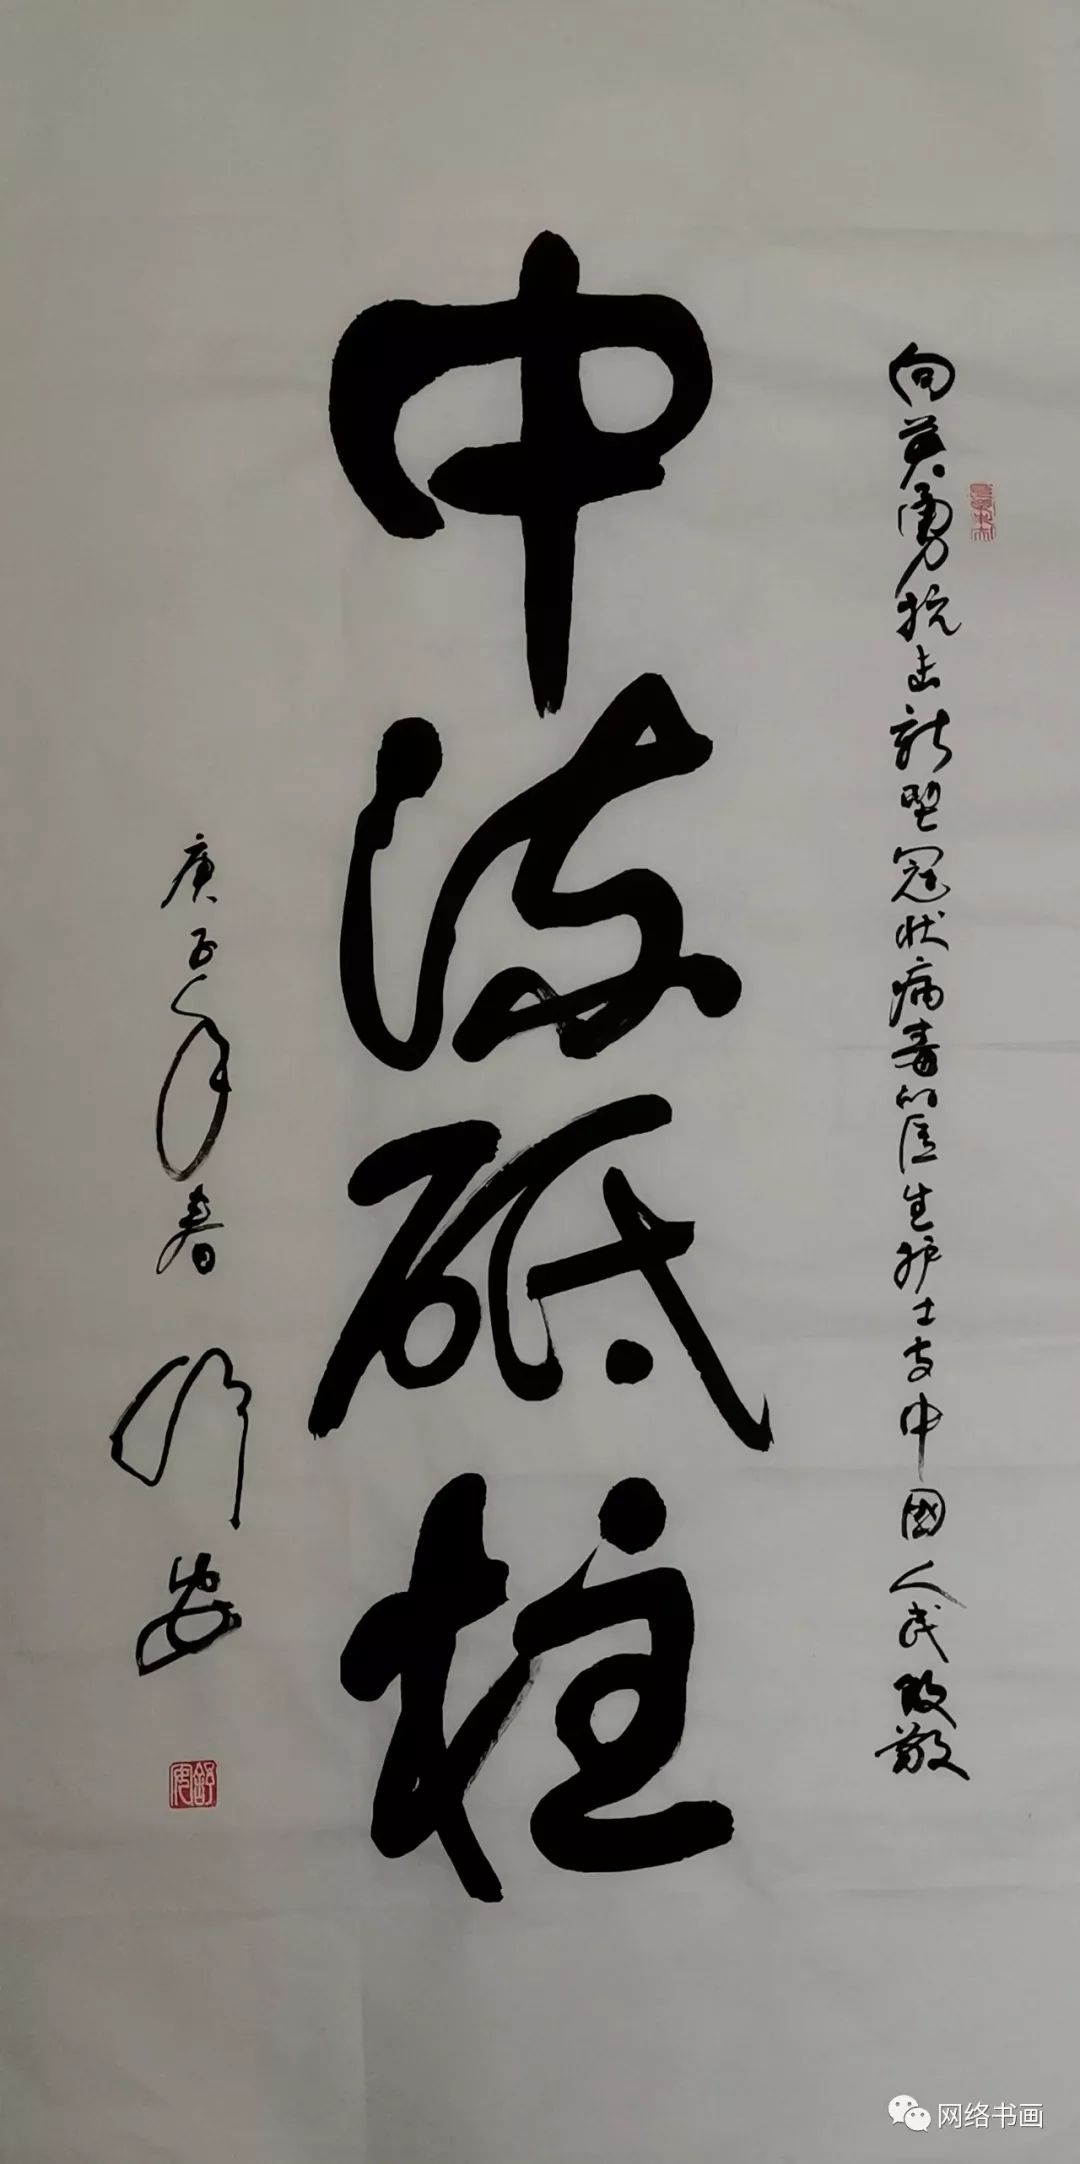 向英勇抗击新型冠状病毒的医生护士中國人民致敬
中流砥柱
庚子年春 舒安
舒安
网络书画